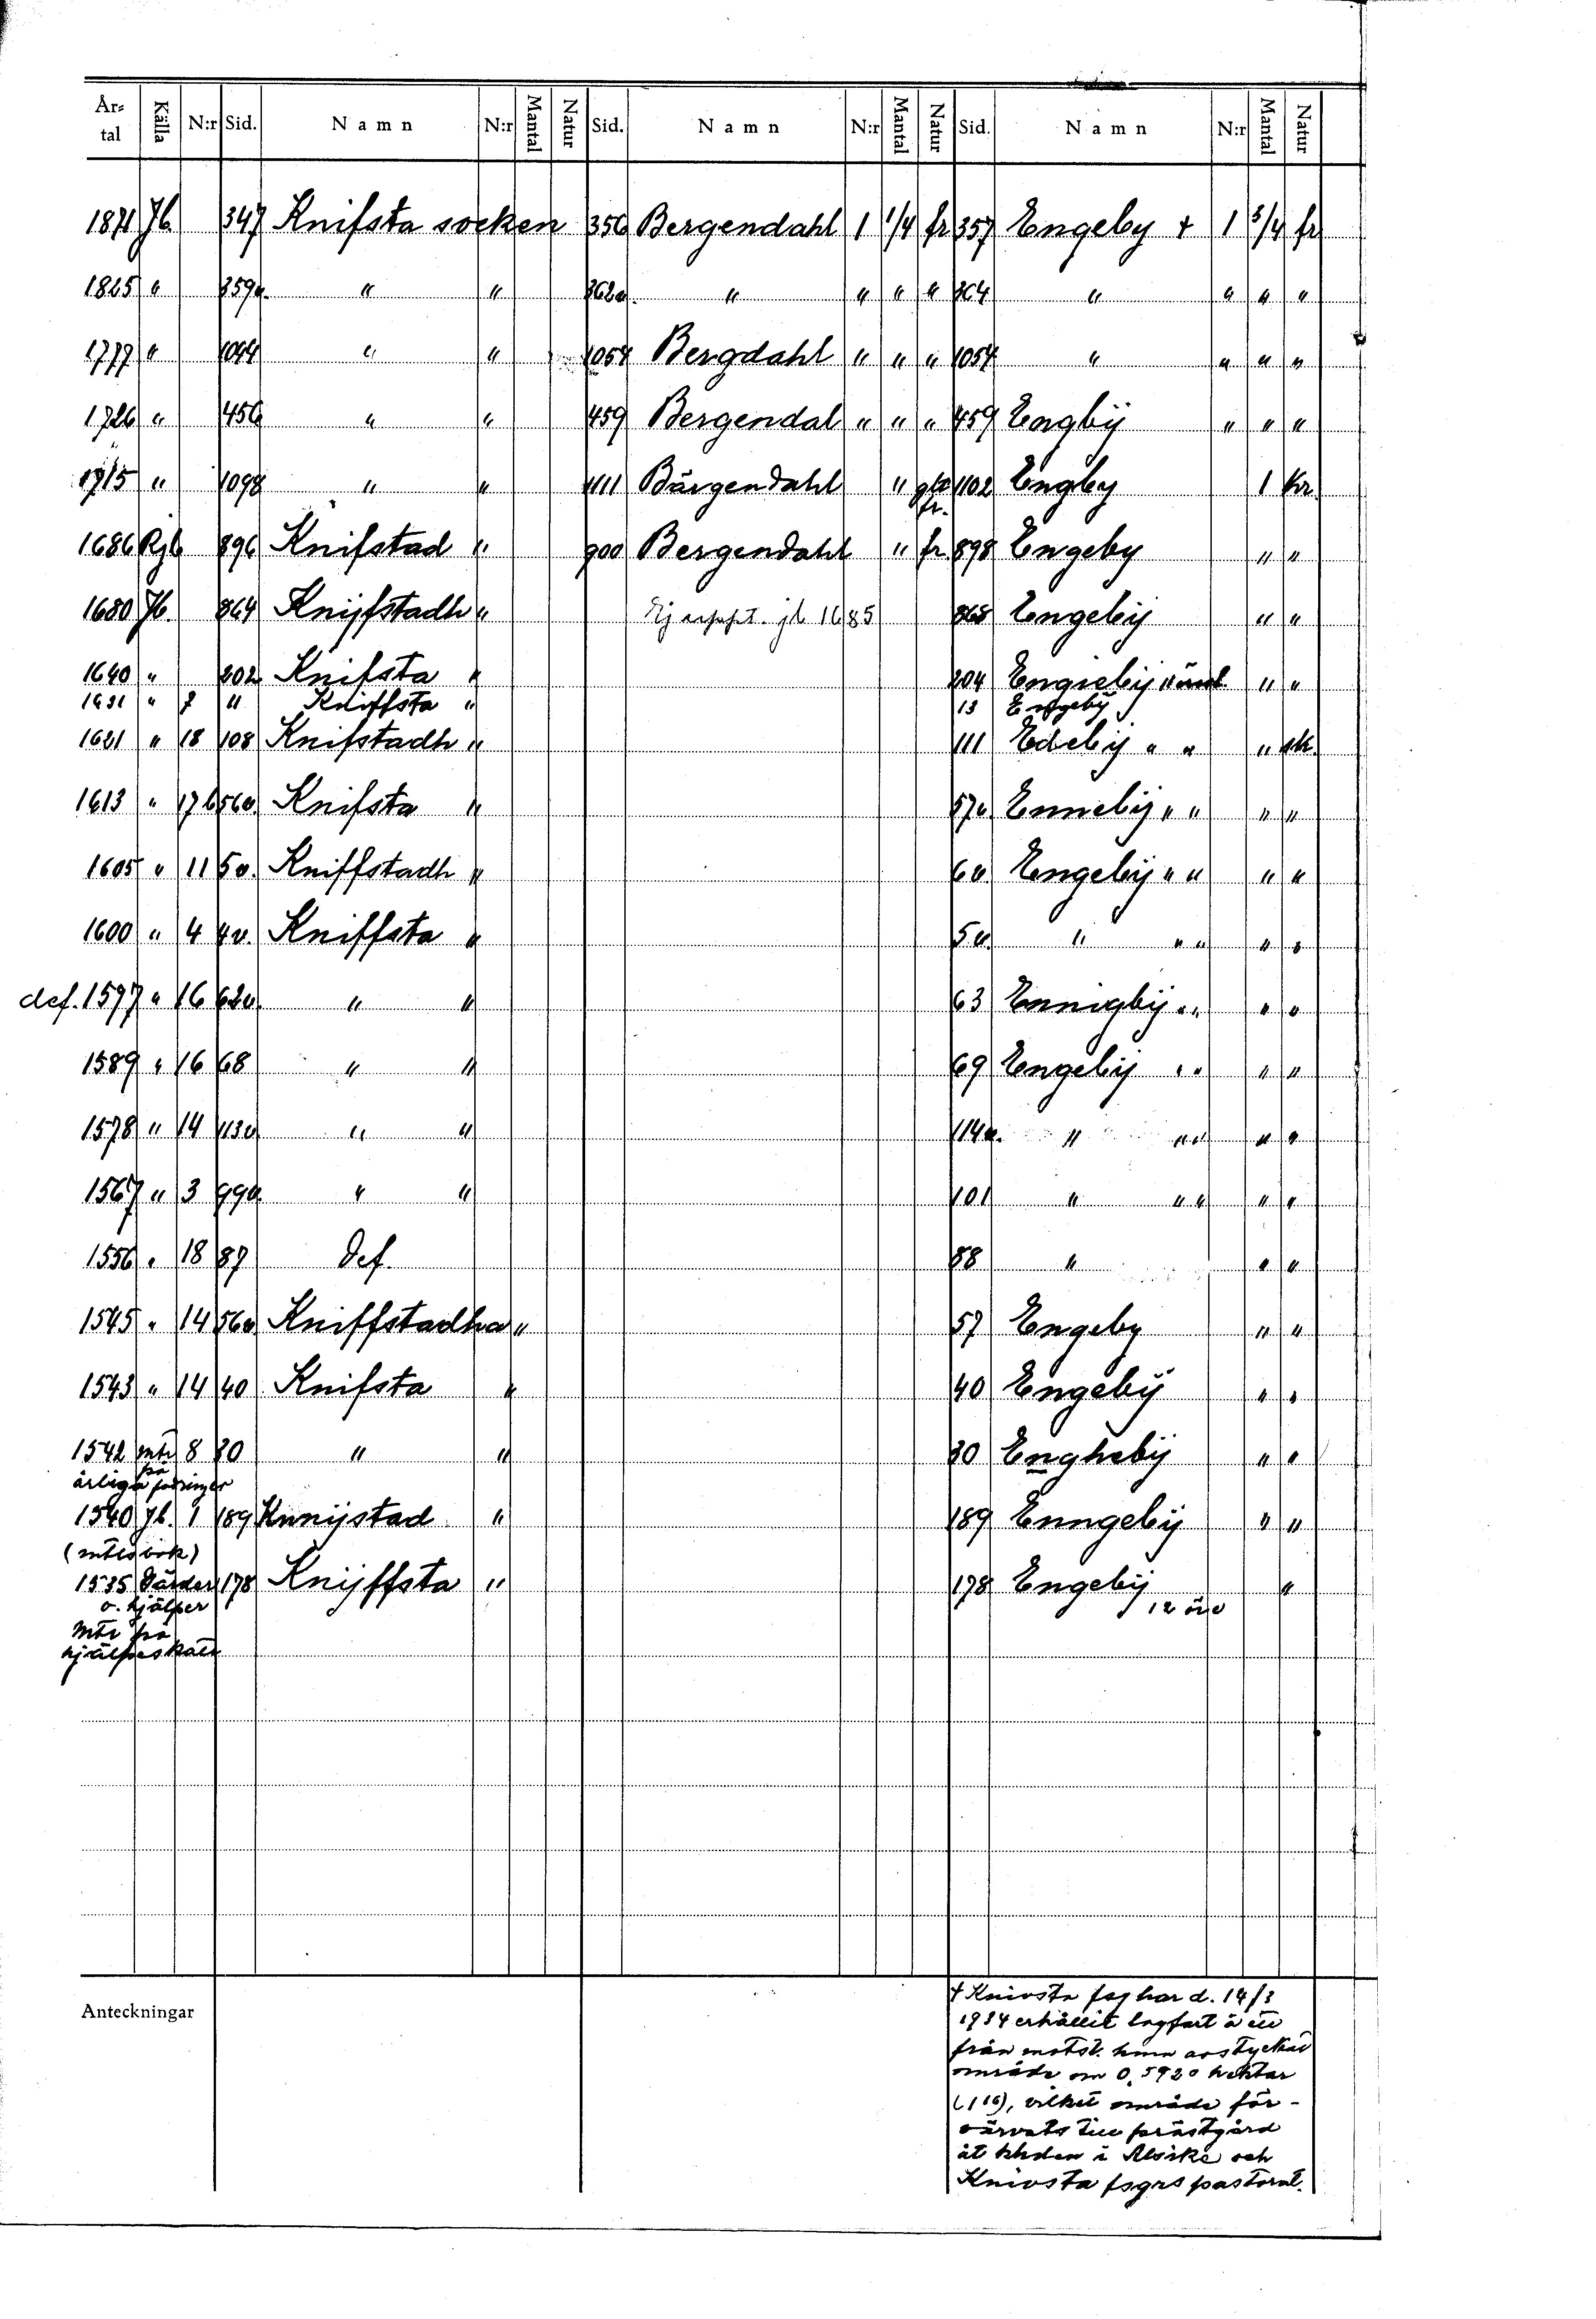 År-tal Källa N:r Sid. Namn N:r Mantal Natur Sid. Namn N:r Mantal Natur Sid. Namn N:r Mantal Natur
1871 Jb. 347 Knifsta socken 356 Bergendahl 1 1/4 fr 357 Engeby + 1 3/4 fr
1825 " 359v. " " 362v. " " " " 364 " " " "
1777 " 1044 " " 1054 Bergdahl " " " 1054 " " " "
1726 " 456 " " 459 Bergendal " " " 459 Engbÿ " " "
1715 " 1098 " " 1111 Bärgendahl " fr. 1102 Engby 1 kr.
1686 Rjb 896 Knifstad " 900 Bergendahl " fr. 898 Engeby " "
1680 Jb. 864 Knijfstadh " Ej jb 1685 868 Engebÿ " "
1640 " 202 Knifsta " 204 " "
1631 " 7 " Kniffsta " 13 Engebÿ
1621 " 18 108 Knifstadh " 111 Edebÿ " " " sk.
1613 " 17b 56v. Knifsta " 57v Ennebÿ " " " "
1605 " 11 5v. Kniffstadh " 6v Engebÿ " " " "
1600 " 4 4v. Kniffsta " 5v. " " " " "
def. 1597 " 16 62v. " " 63 Ennigbÿ " " " "
1589 " 16 68 " " 69 Engebÿ " " " "
1578 " 14 113v " " 114v. " " " " "
1567 " 3 99v. " " 101 " " " " "
1556 " 18 87 Def. 88 " " "
1545 " 14 56v Kniffstadha " 57 Engeby " "
1543 " 14 40 Knifsta " 40 Engebÿ " "
1542 mtr 8 30 " " 30 Enghebÿ " "
på
årliga
1540 Jb. 1 189 Knnijstad " 189 Enngebÿ " "
(mtlsbok)
1535 Gärder 178 Knijffsta " 178 Engebÿ "
o. hjälper 12 öre
Mtr på
hjälpeskatt
Anteckningar
+ Knivsta fsg har d. 14/3
1934 erhållit lagfart å ett
från motst. hmn avstyckat
område om 0,5920 hektar
(1 16), vilket område för-
värvats till prästgård
åt khden i Alsike och
Knivsta fsgrs pastorat.